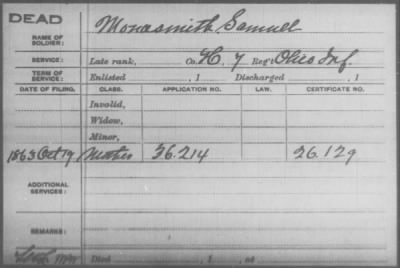 DEAD
NAME OF SOLDIER: Monasmith Samuel
SERVICE: Late rank, Co. H, 7 Reg't Ohio Inf.
TERM OF SERVICE: Enlisted , 1 Discharged , 1
DATE OF FILING. CLASS. APPLICATION NO. LAW. CERTIFICATE NO.
Invalid,
Widow,
Minor,
1863 Oct 19 Mother 36.214 26.129
ADDITIONAL SERVICES:
REMARKS:
Died , 1 , at